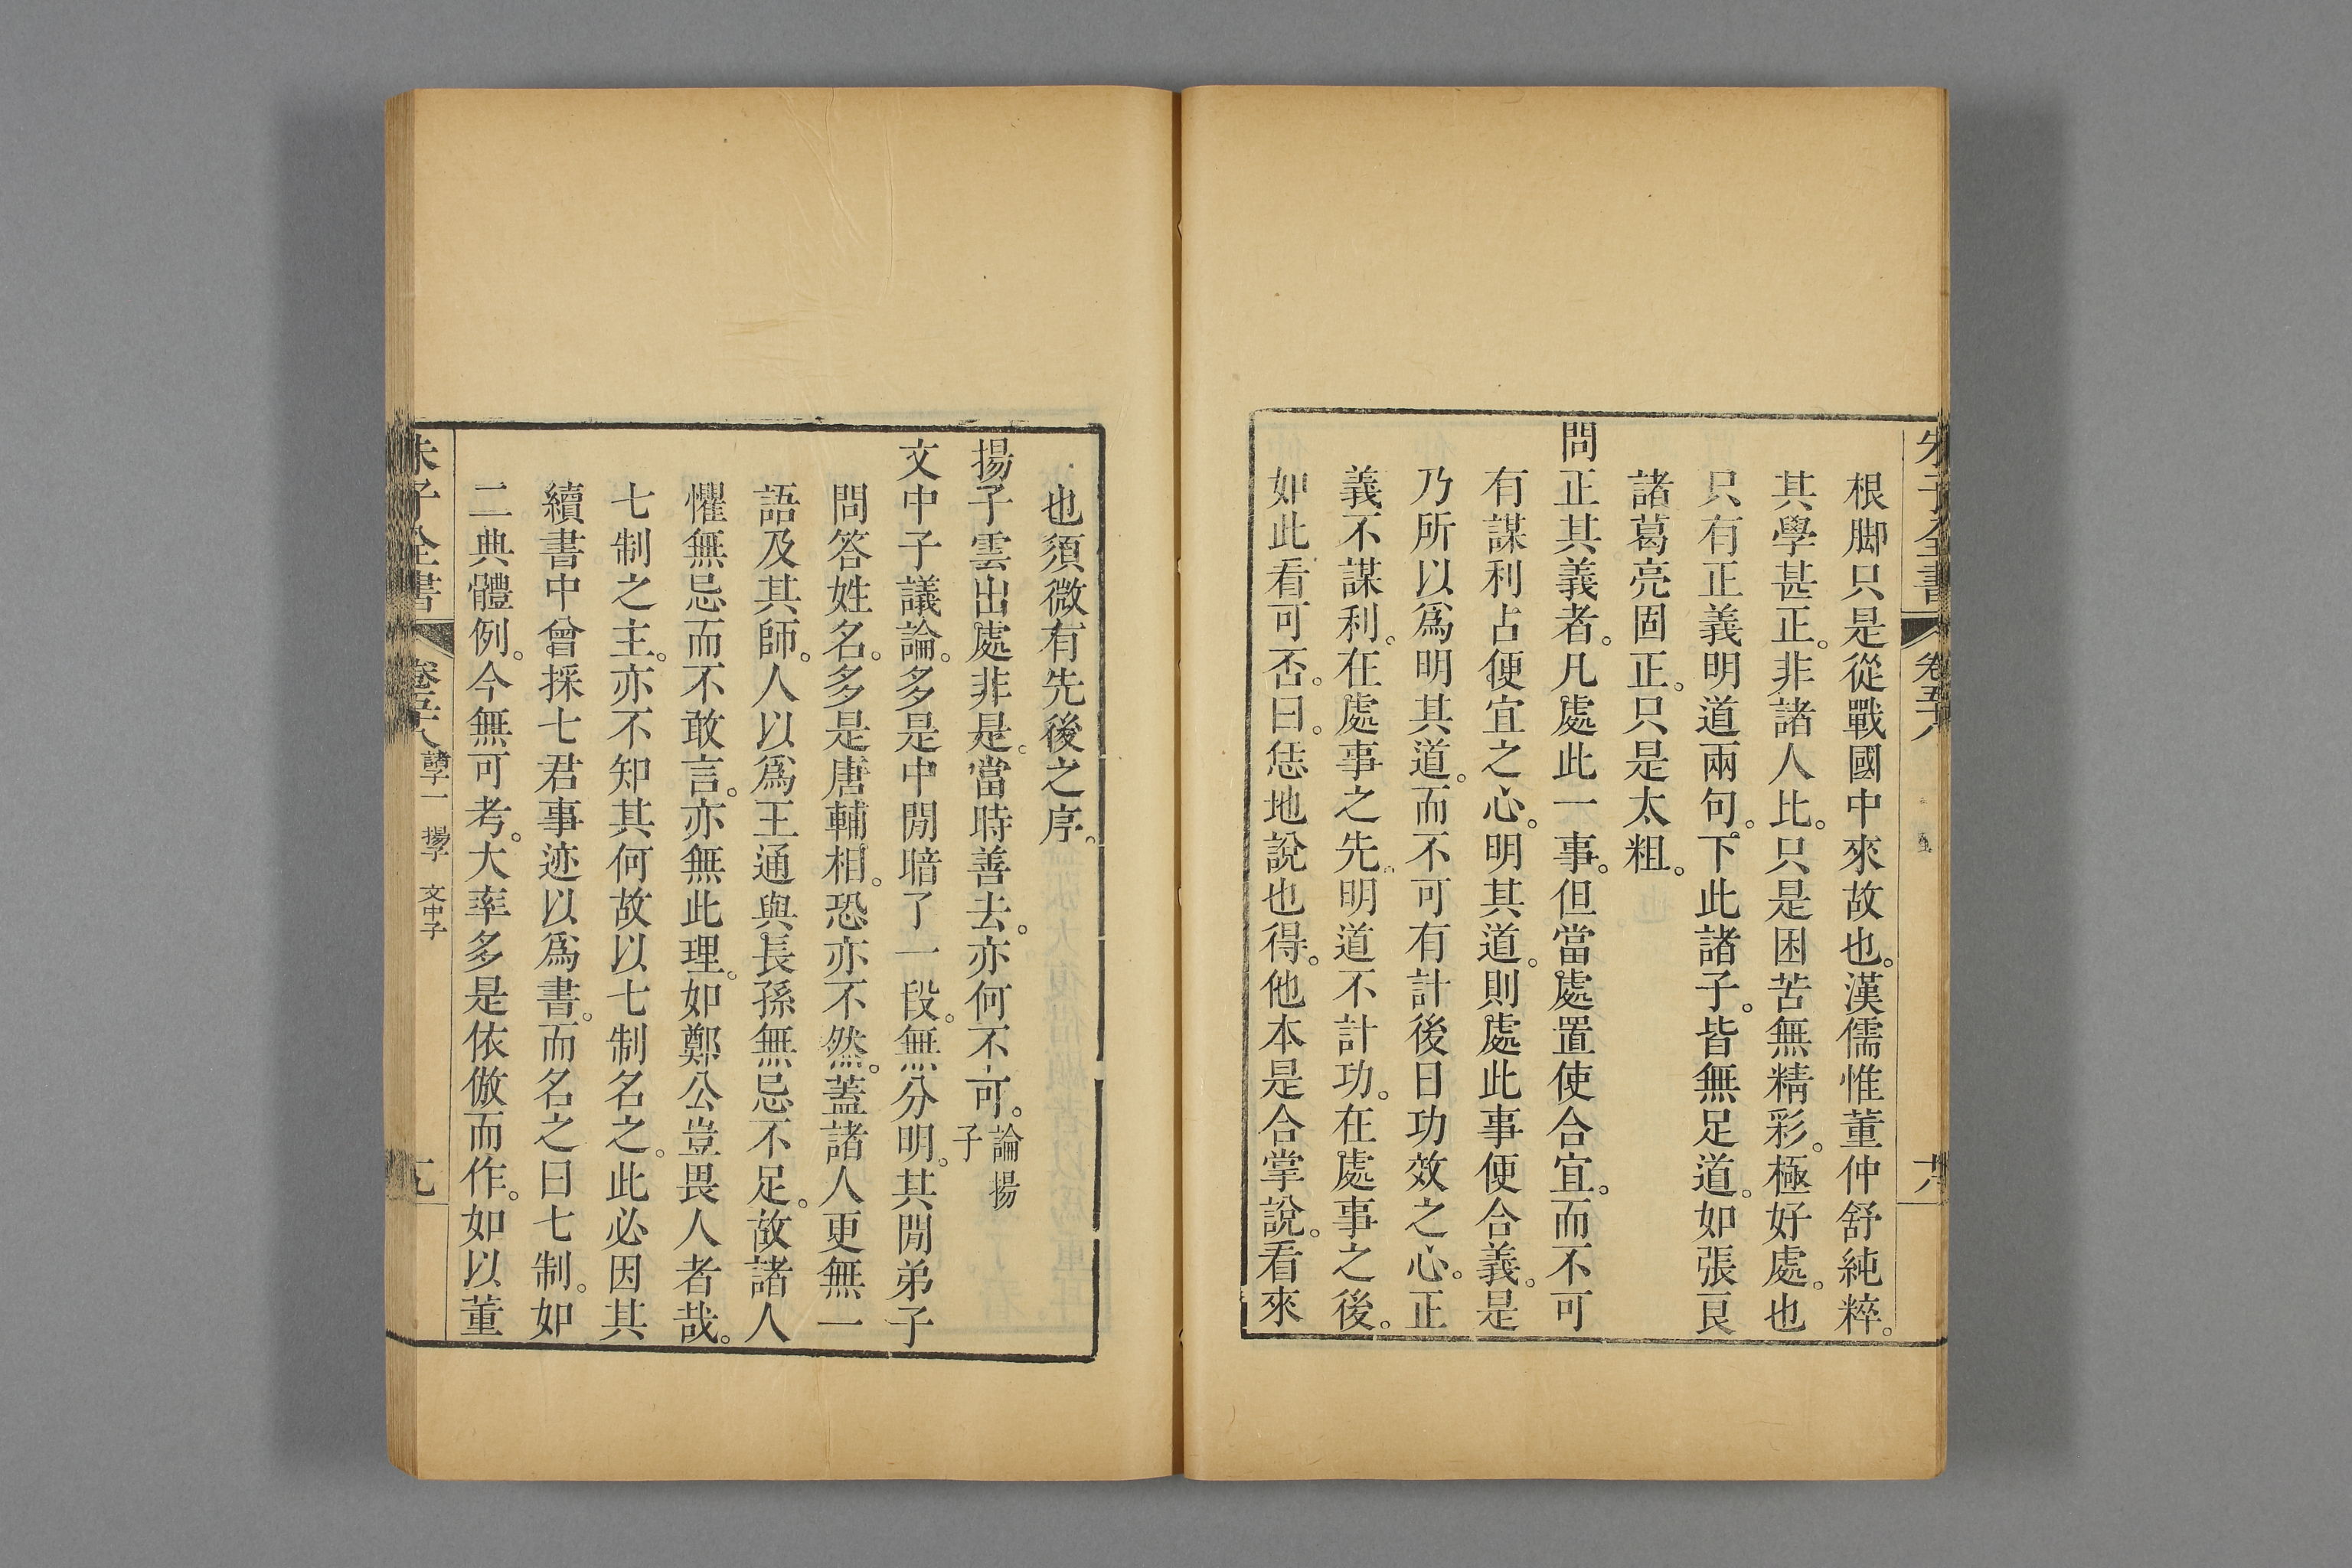 朱子全書 卷五十八 十八
根脚只是從戰國中來故也。漢儒惟董仲舒純粹。
其學甚正。非諸人比。只是困苦無精彩。極好處。也
只有正義明道兩句。下此諸子。皆無足道。如張良
諸葛亮固正。只是太粗。
問正其義者。凡處此一事。但當處置使合宜。而不可
有謀利占便宜之心。明其道。則處此事便合義。是
乃所以爲明其道。而不可有計後日功效之心。正
義不謀利。在處事之先。明道不計功。在處事之後。
如此看可否。曰。恁地說也得。他本是合掌說。看來
也須微有先後之序。
揚子雲出處非是。當時善去。亦何不可。論揚子
文中子議論。多是中閒暗了一段。無分明。其閒弟子
問答姓名。多是唐輔相。恐亦不然。蓋諸人更無一
語及其師。人以爲王通與長孫無忌不足。故諸人
懼無忌而不敢言。亦無此理。如鄭公豈畏人者哉。
七制之主。亦不知其何故以七制名之。此必因其
續書中曾採七君事迹以爲書。而名之曰七制。如
二典體例。今無可考。大率多是依倣而作。如以董
朱子全書 卷五十八 諸子一 揚子 文中子